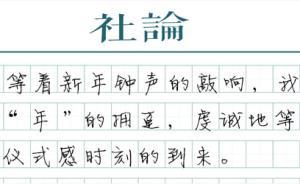 社論
等着新年钟声的敲响，我
“年”的拥
，虔诚地等
仪式感时刻的到来。